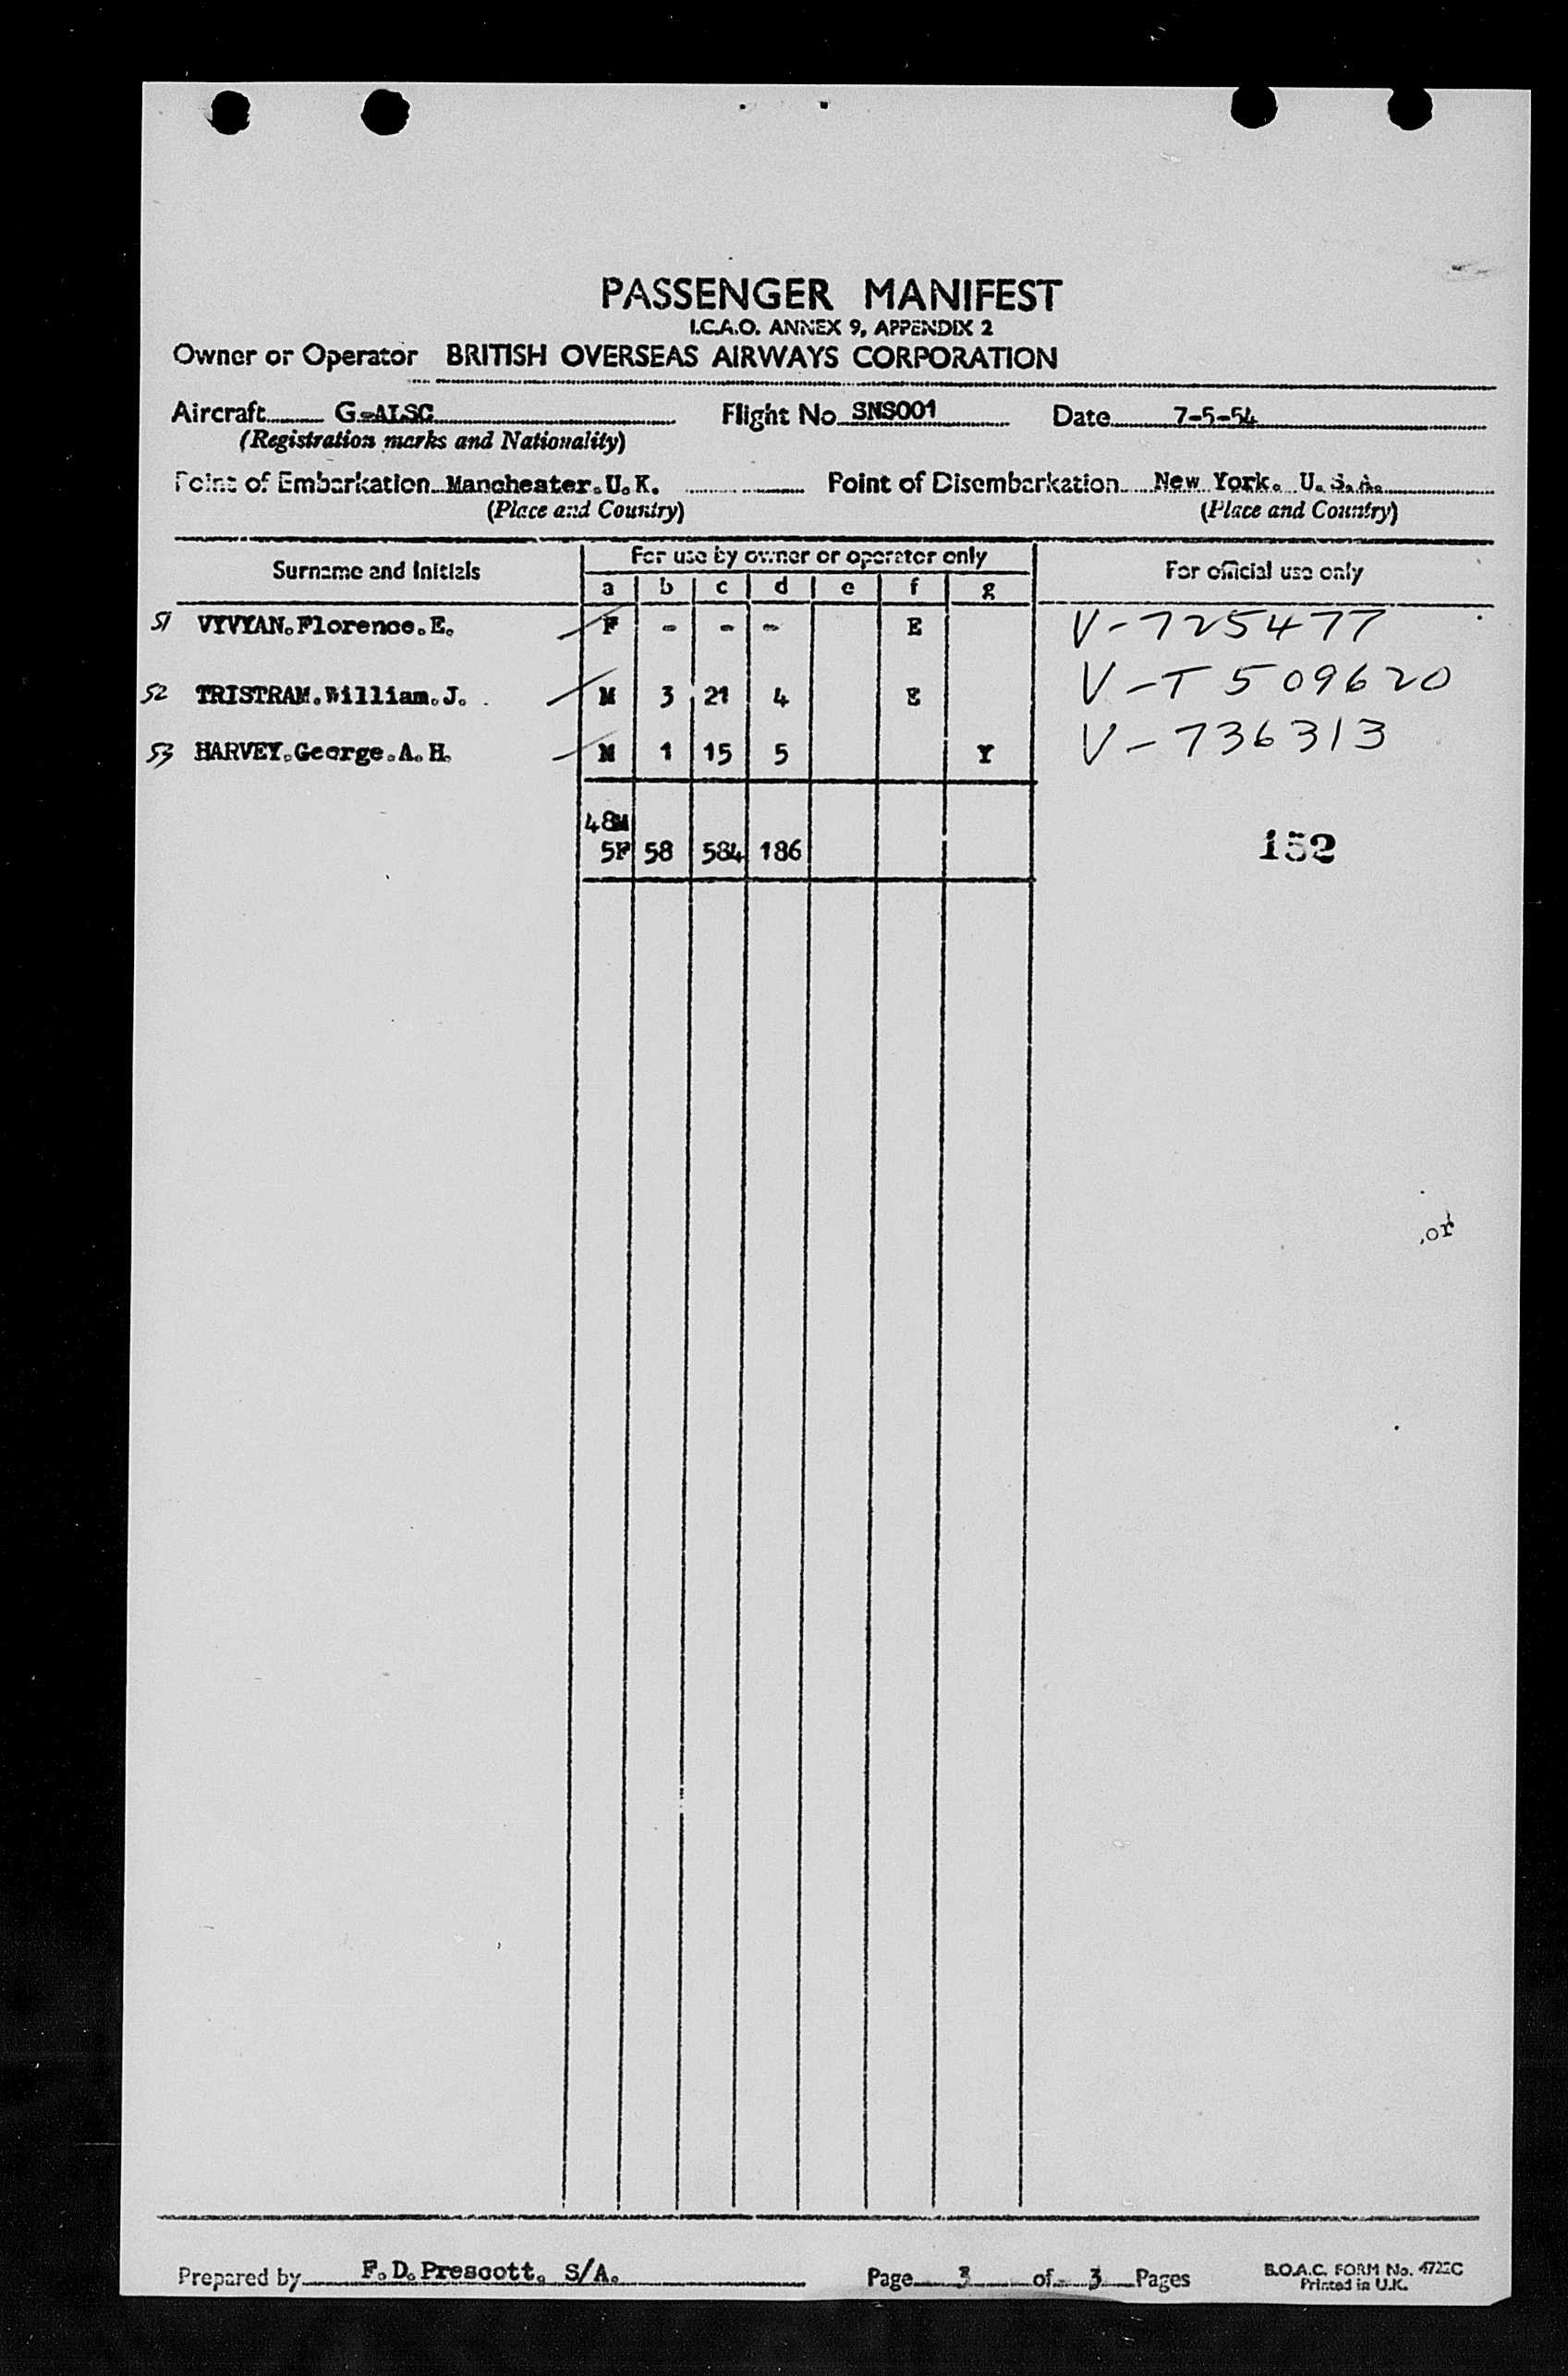 PASSENGER MANIFEST
I.C.A.O. ANNEX 9, APPENDIX 2
Owner or Operator BRITISH OVERSEAS AIRWAYS CORPORATION
Aircraft G-ALSC Flight No SNS001 Date 7-5-54
(Registration marks and Nationality)
Point of Embarkation Manchester.U.K. Point of Disembarkation New York. U.S.A.
(Place and Country) (Place and Country)
Surname and Initials For use by owner or operator only For official use only
a b c d e f g
51 VYVYAN.Florence.E. F - - - E V-725477
52 TRISTRAM.William.J. M 3 21 4 E V-T 509620
53 HARVEY.George.A.H. M 1 15 5 Y V-736313
48M
5F 58 584 186 152
or
Prepared by F.D.Prescott. S/A. Page 3 of 3 Pages B.O.A.C. FORM No.
Printed in U.K.